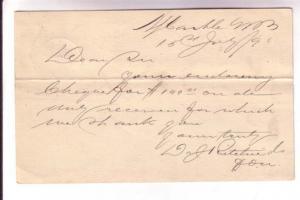 15th July
Dear Sir
yours enclosing
Cheque for $100.00 on
duly received for which
we thank you
yours truly
D & J Ritchie